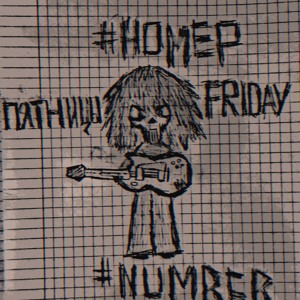 #НОМЕР
ПЯТНИЦЫ FRIDAY
#NUMBER